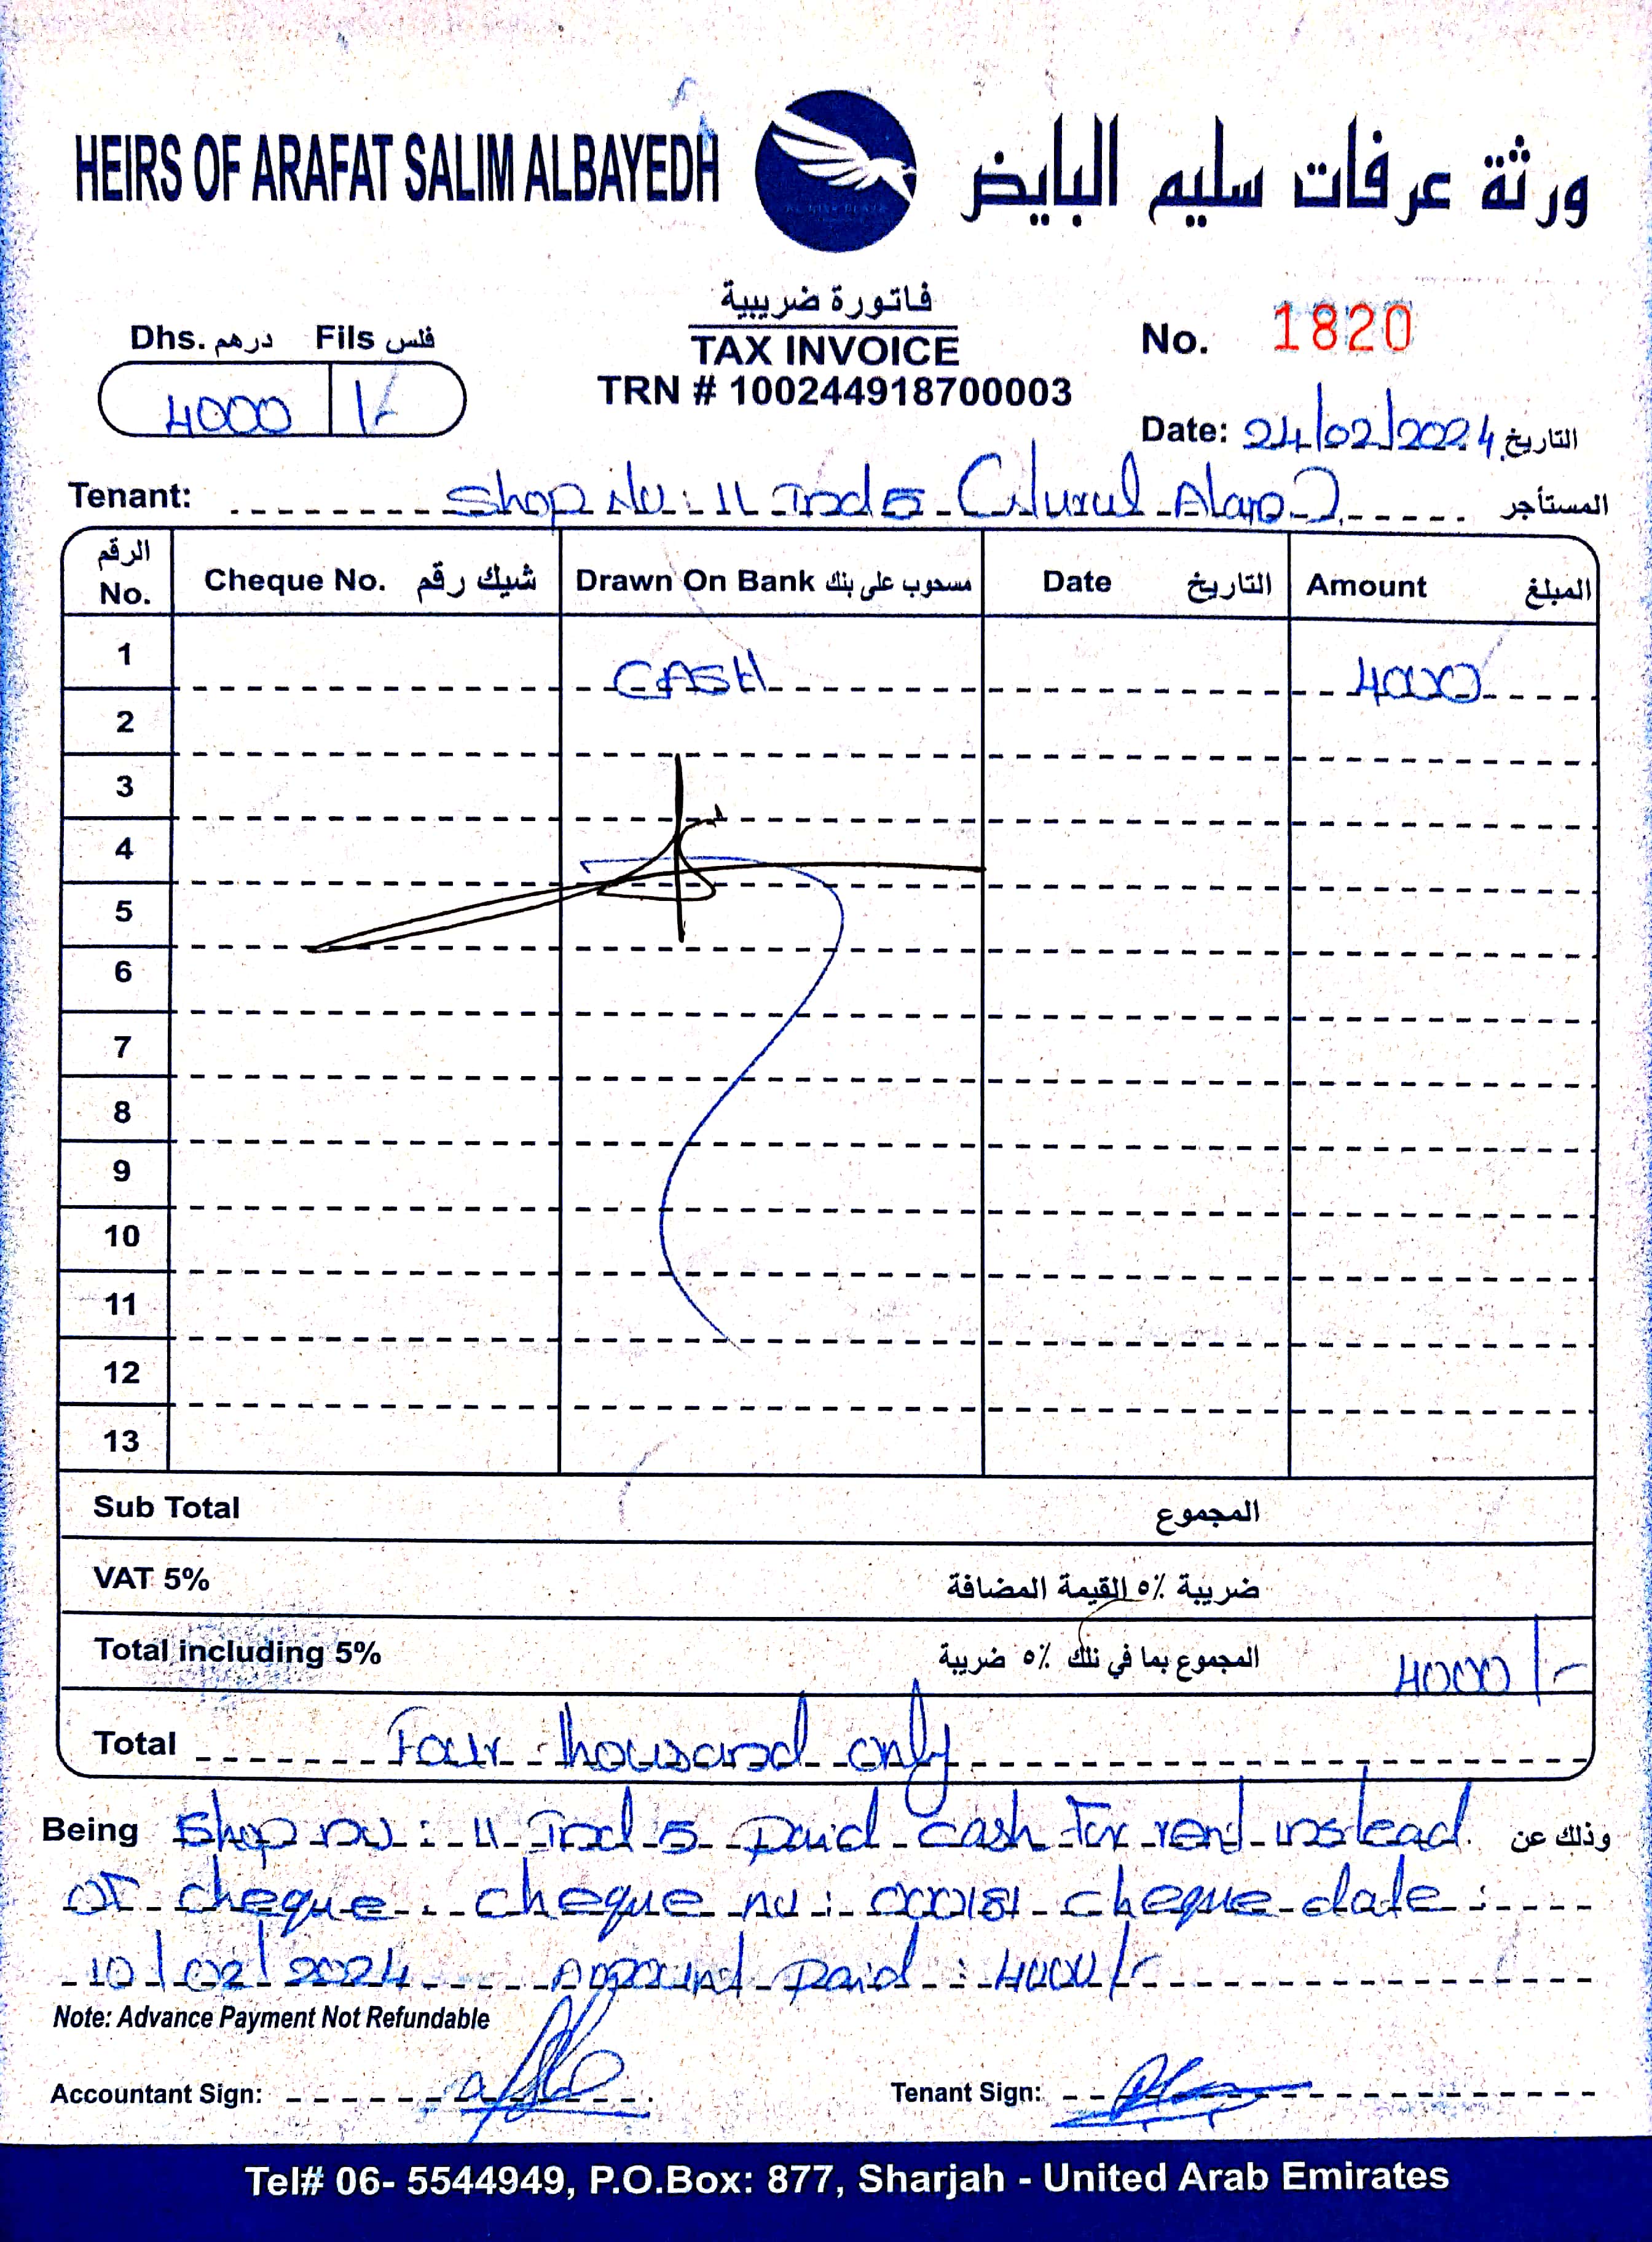 HEIRS OF ARAFAT SALIM ALBAYEDH ورثة عرفات سليم البايض
فاتورة ضريبية
TAX INVOICE
TRN # 100244918700003
Dhs. درهم Fils فلس
4000 /-
No. 1820
Date: 24/02/2024 التاريخ
Tenant: Shop No: 11 Ind 5 (Nurul Alam) المستأجر
الرقم No. Cheque No. شيك رقم Drawn On Bank مسحوب على بنك Date التاريخ Amount المبلغ
1 CASH 4000
2
3
4
5
6
7
8
9
10
11
12
13
Sub Total المجموع
VAT 5% ضريبة ٥٪ القيمة المضافة
Total including 5% المجموع بما في ذلك ٥٪ ضريبة 4000/-
Total Four thousand only
Being Shop no: 11 Ind 5 Paid cash for rent instead وذلك عن
of cheque. cheque no: 000181 cheque date:
10/02/2024 Amount Paid: 4000/-
Note: Advance Payment Not Refundable
Accountant Sign: Tenant Sign:
Tel# 06- 5544949, P.O.Box: 877, Sharjah - United Arab Emirates